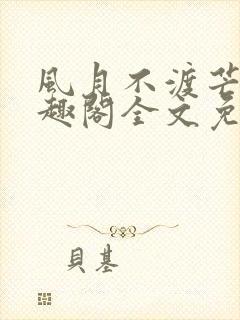 風月不渡芒
趣閣全文免
貝基